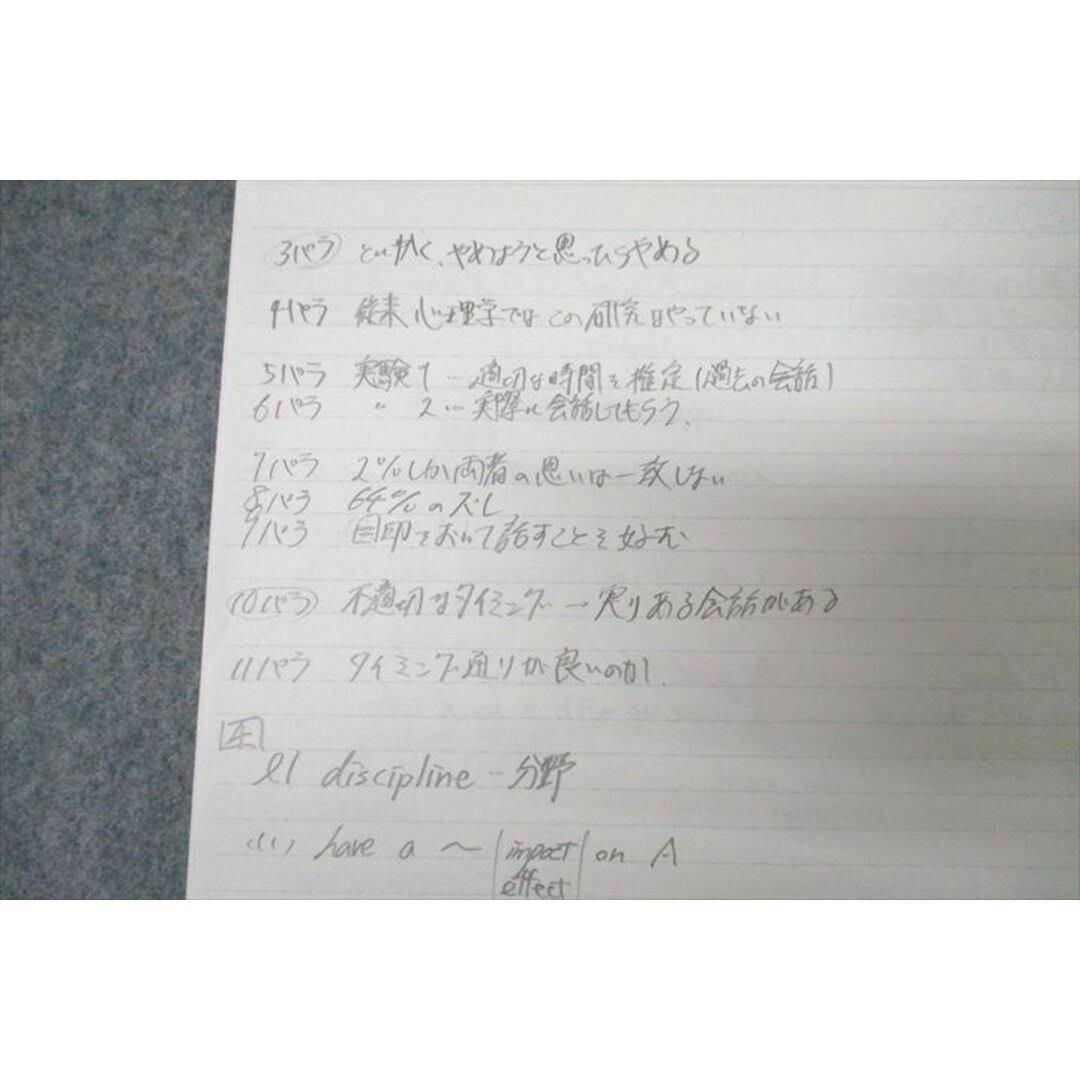 3パラ とにかく、やめようと思ったらやめる
4パラ 従来 心理学ではこの研究はやっていない
5パラ 実験1…適切な時間を推定(過去の会話)
6パラ 〃 2…実際に会話してもらう.
7パラ 2%しか両者の思いは一致しない
8パラ 64%のズレ
9パラ 目印をおいて話すことを好む
10パラ 不適切なタイミング→実りある会話がある
11パラ タイミング通りが良いのか!
l1 discipline…分野
(1) have a ～ impact on A
effect